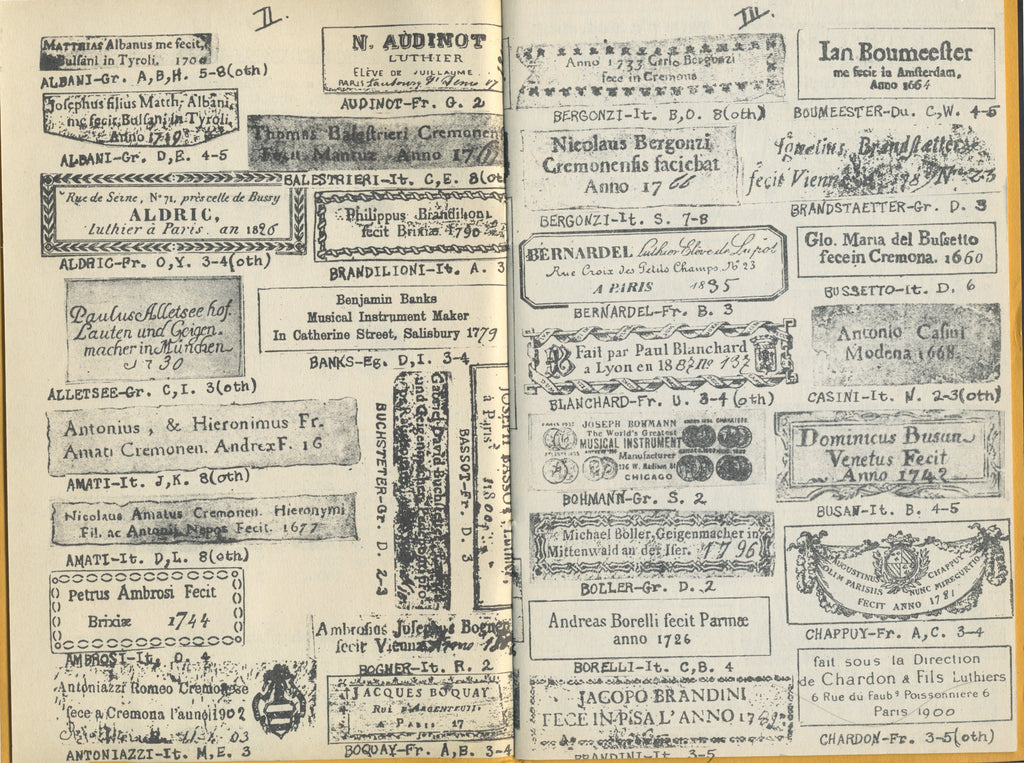 II.
MATTHIAS Albanus me fecit,
Bulsani in Tyroli. 170
ALBANI-Gr. A,B,H. 5-8(oth)
Josephus filius Matth. Albani,
me fecit, Bulsani in Tyroli,
Anno 1719
ALBANI-Gr. D,E. 4-5
"Rue de Seine, N° 71, près celle de Bussy
ALDRIC,
luthier à Paris. an 1826
ALDRIC-Fr. O,Y. 3-4(oth)
Paulus Alletsee hof.
Lauten und Geigen.
macher in München
1730
ALLETSEE-Gr. C,I. 3(oth)
Antonius, & Hieronimus Fr.
Amati Cremonen. Andreæ F. 16
AMATI-It. J,K. 8(oth)
Nicolaus Amatus Cremonen. Hieronymi
Fil. ac Antonii Nepos Fecit. 1677
AMATI-It. D,L. 8(oth)
Petrus Ambrosi Fecit
Brixiæ 1744
AMBROSI-It. O. 4
Antoniazzi Romeo Cremonese
fece a Cremona l'anno 1902
03
ANTONIAZZI-It. M,E. 3
N. AUDINOT
LUTHIER
ÉLÈVE DE VUILLAUME
PARIS
AUDINOT-Fr. G. 2
Thomas Balestrieri Cremonen
Fecit Mantuæ Anno 17
BALESTRIERI-It. C,E. 8(ot
Philippus Brandilioni
fecit Brixiæ 1790
BRANDILIONI-It. A. 3
Benjamin Banks
Musical Instrument Maker
In Catherine Street, Salisbury 1779
BANKS-Eg. D,I. 3-4
BUCHSTETER-Gr. D. 2-3
Gabriel David Buchstet
und Geigenmacher
BASSOT-Fr. D. 3
JOSEPH BASSOT
à Paris 1800
Ambrosius Josephus Bogner
fecit Viennæ Anno
BOGNER-It. R. 2
JACQUES BOQUAY
RUE D'ARGENTEUIL
A PARIS 17
BOQUAY-Fr. A,B. 3-4
III.
Anno 1733 Carlo Bergonzi
fece in Cremona
BERGONZI-It. B,O. 8(oth)
Nicolaus Bergonzi
Cremonensis faciebat
Anno 1766
BERGONZI-It. S. 7-8
BERNARDEL Luthier Elève de Lupot
Rue Croix des Petits Champs, No 23
A PARIS 1835
BERNARDEL-Fr. B. 3
Fait par Paul Blanchard
a Lyon en 18 No 137
BLANCHARD-Fr. U. 3-4(oth)
JOSEPH BOHMANN
The World's Greatest
MUSICAL INSTRUMENT
Manufacturer
CHICAGO
BOHMANN-Gr. S. 2
Michael Böller, Geigenmacher in
Mittenwald an der Iser. 1796
BOLLER-Gr. D. 2
Andreas Borelli fecit Parmæ
anno 1726
BORELLI-It. C,B. 4
JACOPO BRANDINI
FECE IN PISA L'ANNO 17
BRANDINI-It. 3-5
Ian Boumeester
me fecit in Amsterdam,
Anno 1664
BOUMEESTER-Du. C,W. 4-5
Ignatius Brandstætter
fecit Viennæ 1789 No 23
BRANDSTAETTER-Gr. D. 3
Gio. Maria del Bussetto
fece in Cremona. 1660
BUSSETTO-It. D. 6
Antonio Casini
Modena 1668
CASINI-It. N. 2-3(oth)
Dominicus Busan
Venetus Fecit
Anno 1742
BUSAN-It. B. 4-5
AUGUSTINUS CHAPPUY
OLIM PARISIIS NUNC MIRECURTII
FECIT ANNO 1781
CHAPPUY-Fr. A,C. 3-4
fait sous la Direction
de Chardon & Fils Luthiers
6 Rue du Faubg Poissonnière 6
Paris 1900
CHARDON-Fr. 3-5(oth)